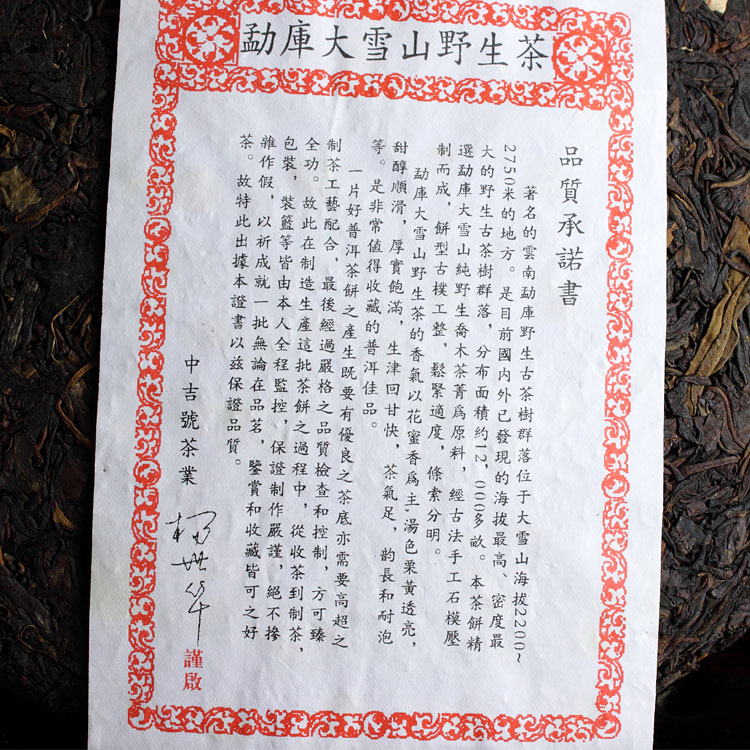 勐庫大雪山野生茶
品質承諾書
著名的雲南勐庫野生古茶樹群落位于大雪山海拔2200~
2750米的地方。是目前國内外已發現的海拔最高、密度最
大的野生古茶樹群落，分布面積約12,000多畝。本茶餅精
選勐庫大雪山純野生喬木茶菁爲原料，經古法手工石模壓
制而成，餅型古樸工整，鬆緊適度，條索分明。
勐庫大雪山野生茶的香氣以花蜜香爲主，湯色栗黃透亮，
甜醇順滑，厚實飽滿，生津回甘快，茶氣足，韵長和耐泡
等。是非常值得收藏的普洱佳品。
一片好普洱茶餅之產生既要有優良之茶底亦需要高超之
制茶工藝配合，最後經過嚴格之品質檢查和控制，方可臻
全功。故此在制造生產這批茶餅之過程中，從收茶到制茶，
包裝，裝籃等皆由本人全程監控，保證制作嚴謹，絕不摻
雜作假，以祈成就一批無論在品茗，鑒賞和收藏皆可之好
茶。故特此出據本證書以兹保證品質。
中吉號茶業
謹啟